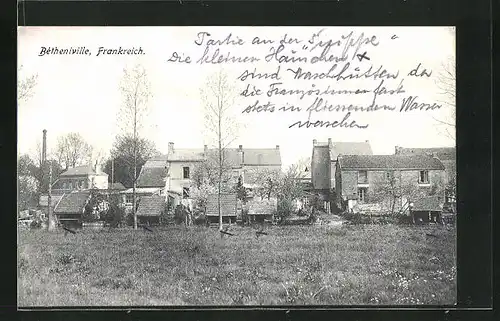 Bétheniville, Frankreich.
Partie an der "Suippe"
Die kleinen Häuschen x
sind Waschhütten, da
die Französinnen fast
stets in fliessenden Wasser
waschen.